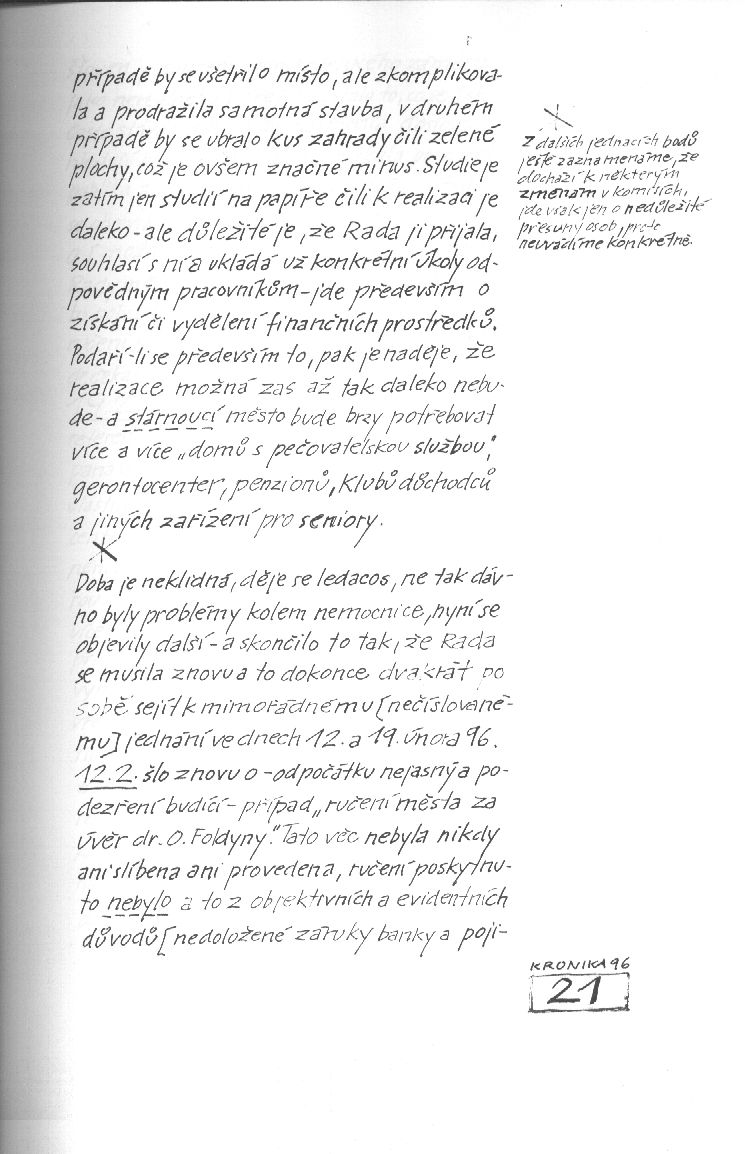 případě by se ušetřilo místo, ale zkomplikova-
la a prodražila samotná stavba, v druhém
případě by se ubralo kus zahrady čili zelené
plochy, což je ovšem značné mínus. Studie je
zatím jen studií na papíře čili k realizaci je
daleko - ale důležité je, že Rada ji přijala,
souhlasí s ní a ukládá už konkrétní úkoly od-
povědným pracovníkům - jde především o
získání či vydělení finančních prostředků.
Podaří-li se především to, pak je naděje, že
realizace možná zas až tak daleko nebu-
de - a stárnoucí město bude brzy potřebovat
více a více „domů s pečovatelskou službou",
gerontocenter, penzionů, klubů důchodců
a jiných zařízení pro seniory.
Doba je neklidná, děje se ledacos, ne tak dáv-
no byly problémy kolem nemocnice, nyní se
objevily další - a skončilo to tak, že Rada
se musila znovu a to dokonce dvakrát po
sobě sejít k mimořádnému [nečíslované-
mu] jednání ve dnech 12. a 19. února 96.
12.2. šlo znovu o - odpočátku nejasný a po-
dezření budící - případ „ručení města za
úvěr dr. O. Foldyny." Tato věc nebyla nikdy
ani slíbena ani provedena, ručení poskytnu-
to nebylo a to z objektivních a evidentních
důvodů [nedoložené záruky banky a poji-
Z dalších jednacích bodů
ještě zaznamenáme, že
dochází k některým
změnám v komisích,
jde však jen o nedůležité
přesuny osob, proto
neuvádíme konkrétně.
KRONIKA 96
21